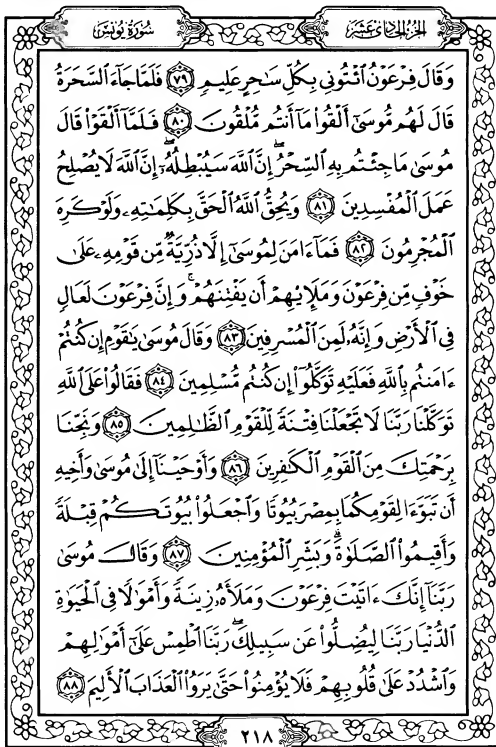 الجزء الحادي عشر
سورة يونس
وَقَالَ فِرْعَوْنُ ٱئْتُونِي بِكُلِّ سَٰحِرٍ عَلِيمٍ ٧٩ فَلَمَّا جَآءَ ٱلسَّحَرَةُ
قَالَ لَهُم مُّوسَىٰٓ أَلْقُوا۟ مَآ أَنتُم مُّلْقُونَ ٨٠ فَلَمَّآ أَلْقَوْا۟ قَالَ
مُوسَىٰ مَا جِئْتُم بِهِ ٱلسِّحْرُ ۖ إِنَّ ٱللَّهَ سَيُبْطِلُهُۥٓ ۖ إِنَّ ٱللَّهَ لَا يُصْلِحُ
عَمَلَ ٱلْمُفْسِدِينَ ٨١ وَيُحِقُّ ٱللَّهُ ٱلْحَقَّ بِكَلِمَٰتِهِۦ وَلَوْ كَرِهَ
ٱلْمُجْرِمُونَ ٨٢ فَمَآ ءَامَنَ لِمُوسَىٰٓ إِلَّا ذُرِّيَّةٌ مِّن قَوْمِهِۦ عَلَىٰ
خَوْفٍ مِّن فِرْعَوْنَ وَمَلَإِي۟هِمْ أَن يَفْتِنَهُمْ ۚ وَإِنَّ فِرْعَوْنَ لَعَالٍ
فِي ٱلْأَرْضِ وَإِنَّهُۥ لَمِنَ ٱلْمُسْرِفِينَ ٨٣ وَقَالَ مُوسَىٰ يَٰقَوْمِ إِن كُنتُمْ
ءَامَنتُم بِٱللَّهِ فَعَلَيْهِ تَوَكَّلُوٓا۟ إِن كُنتُم مُّسْلِمِينَ ٨٤ فَقَالُوا۟ عَلَى ٱللَّهِ
تَوَكَّلْنَا رَبَّنَا لَا تَجْعَلْنَا فِتْنَةً لِّلْقَوْمِ ٱلظَّٰلِمِينَ ٨٥ وَنَجِّنَا
بِرَحْمَتِكَ مِنَ ٱلْقَوْمِ ٱلْكَٰفِرِينَ ٨٦ وَأَوْحَيْنَآ إِلَىٰ مُوسَىٰ وَأَخِيهِ
أَن تَبَوَّءَا لِقَوْمِكُمَا بِمِصْرَ بُيُوتًا وَٱجْعَلُوا۟ بُيُوتَكُمْ قِبْلَةً
وَأَقِيمُوا۟ ٱلصَّلَوٰةَ ۗ وَبَشِّرِ ٱلْمُؤْمِنِينَ ٨٧ وَقَالَ مُوسَىٰ
رَبَّنَآ إِنَّكَ ءَاتَيْتَ فِرْعَوْنَ وَمَلَأَهُۥ زِينَةً وَأَمْوَٰلًا فِي ٱلْحَيَوٰةِ
ٱلدُّنْيَا رَبَّنَا لِيُضِلُّوا۟ عَن سَبِيلِكَ ۖ رَبَّنَا ٱطْمِسْ عَلَىٰٓ أَمْوَٰلِهِمْ
وَٱشْدُدْ عَلَىٰ قُلُوبِهِمْ فَلَا يُؤْمِنُوا۟ حَتَّىٰ يَرَوُا۟ ٱلْعَذَابَ ٱلْأَلِيمَ ٨٨
٢١٨